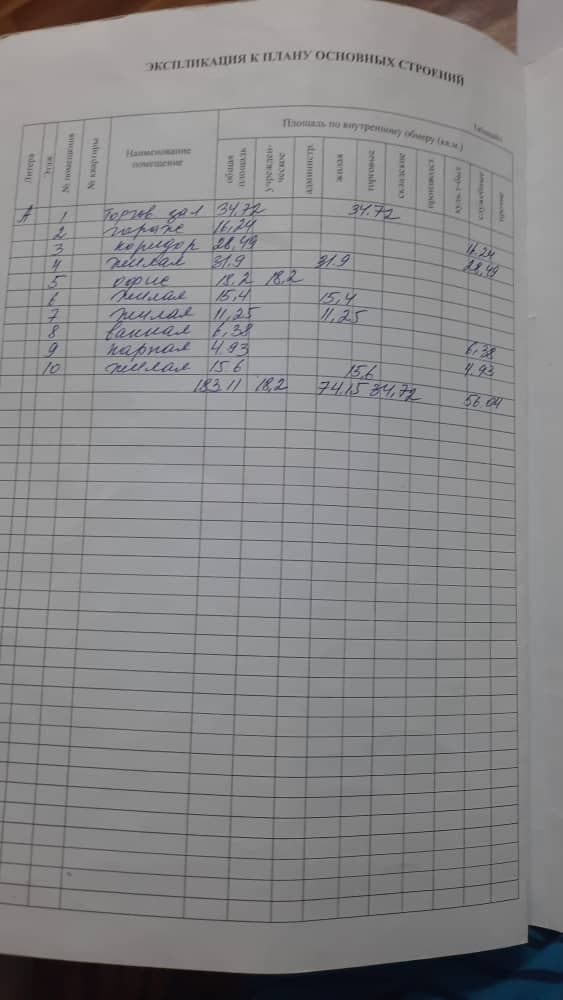 ЭКСПЛИКАЦИЯ К ПЛАНУ ОСНОВНЫХ СТРОЕНИЙ
Площадь по внутреннему обмеру (кв.м.)
Литера Этаж № помещения № квартиры Наименование помещение общая площадь учрежден-ческое администр. жилая торговые складские производст. культ.-быт. служебные прочие
А 1 торгов. зал 34.72 34.72
2 гараж 16,24 16.24
3 коридор 28,49 28,49
4 жилая 31.9 31.9
5 офис 18,2 18,2
6 жилая 15,4 15,4
7 жилая 11,25 11,25
8 ванная 6,38 6,38
9 парная 4.93 4.93
10 жилая 15.6 15,6
183.11 18,2 74.15 34.72 56.04